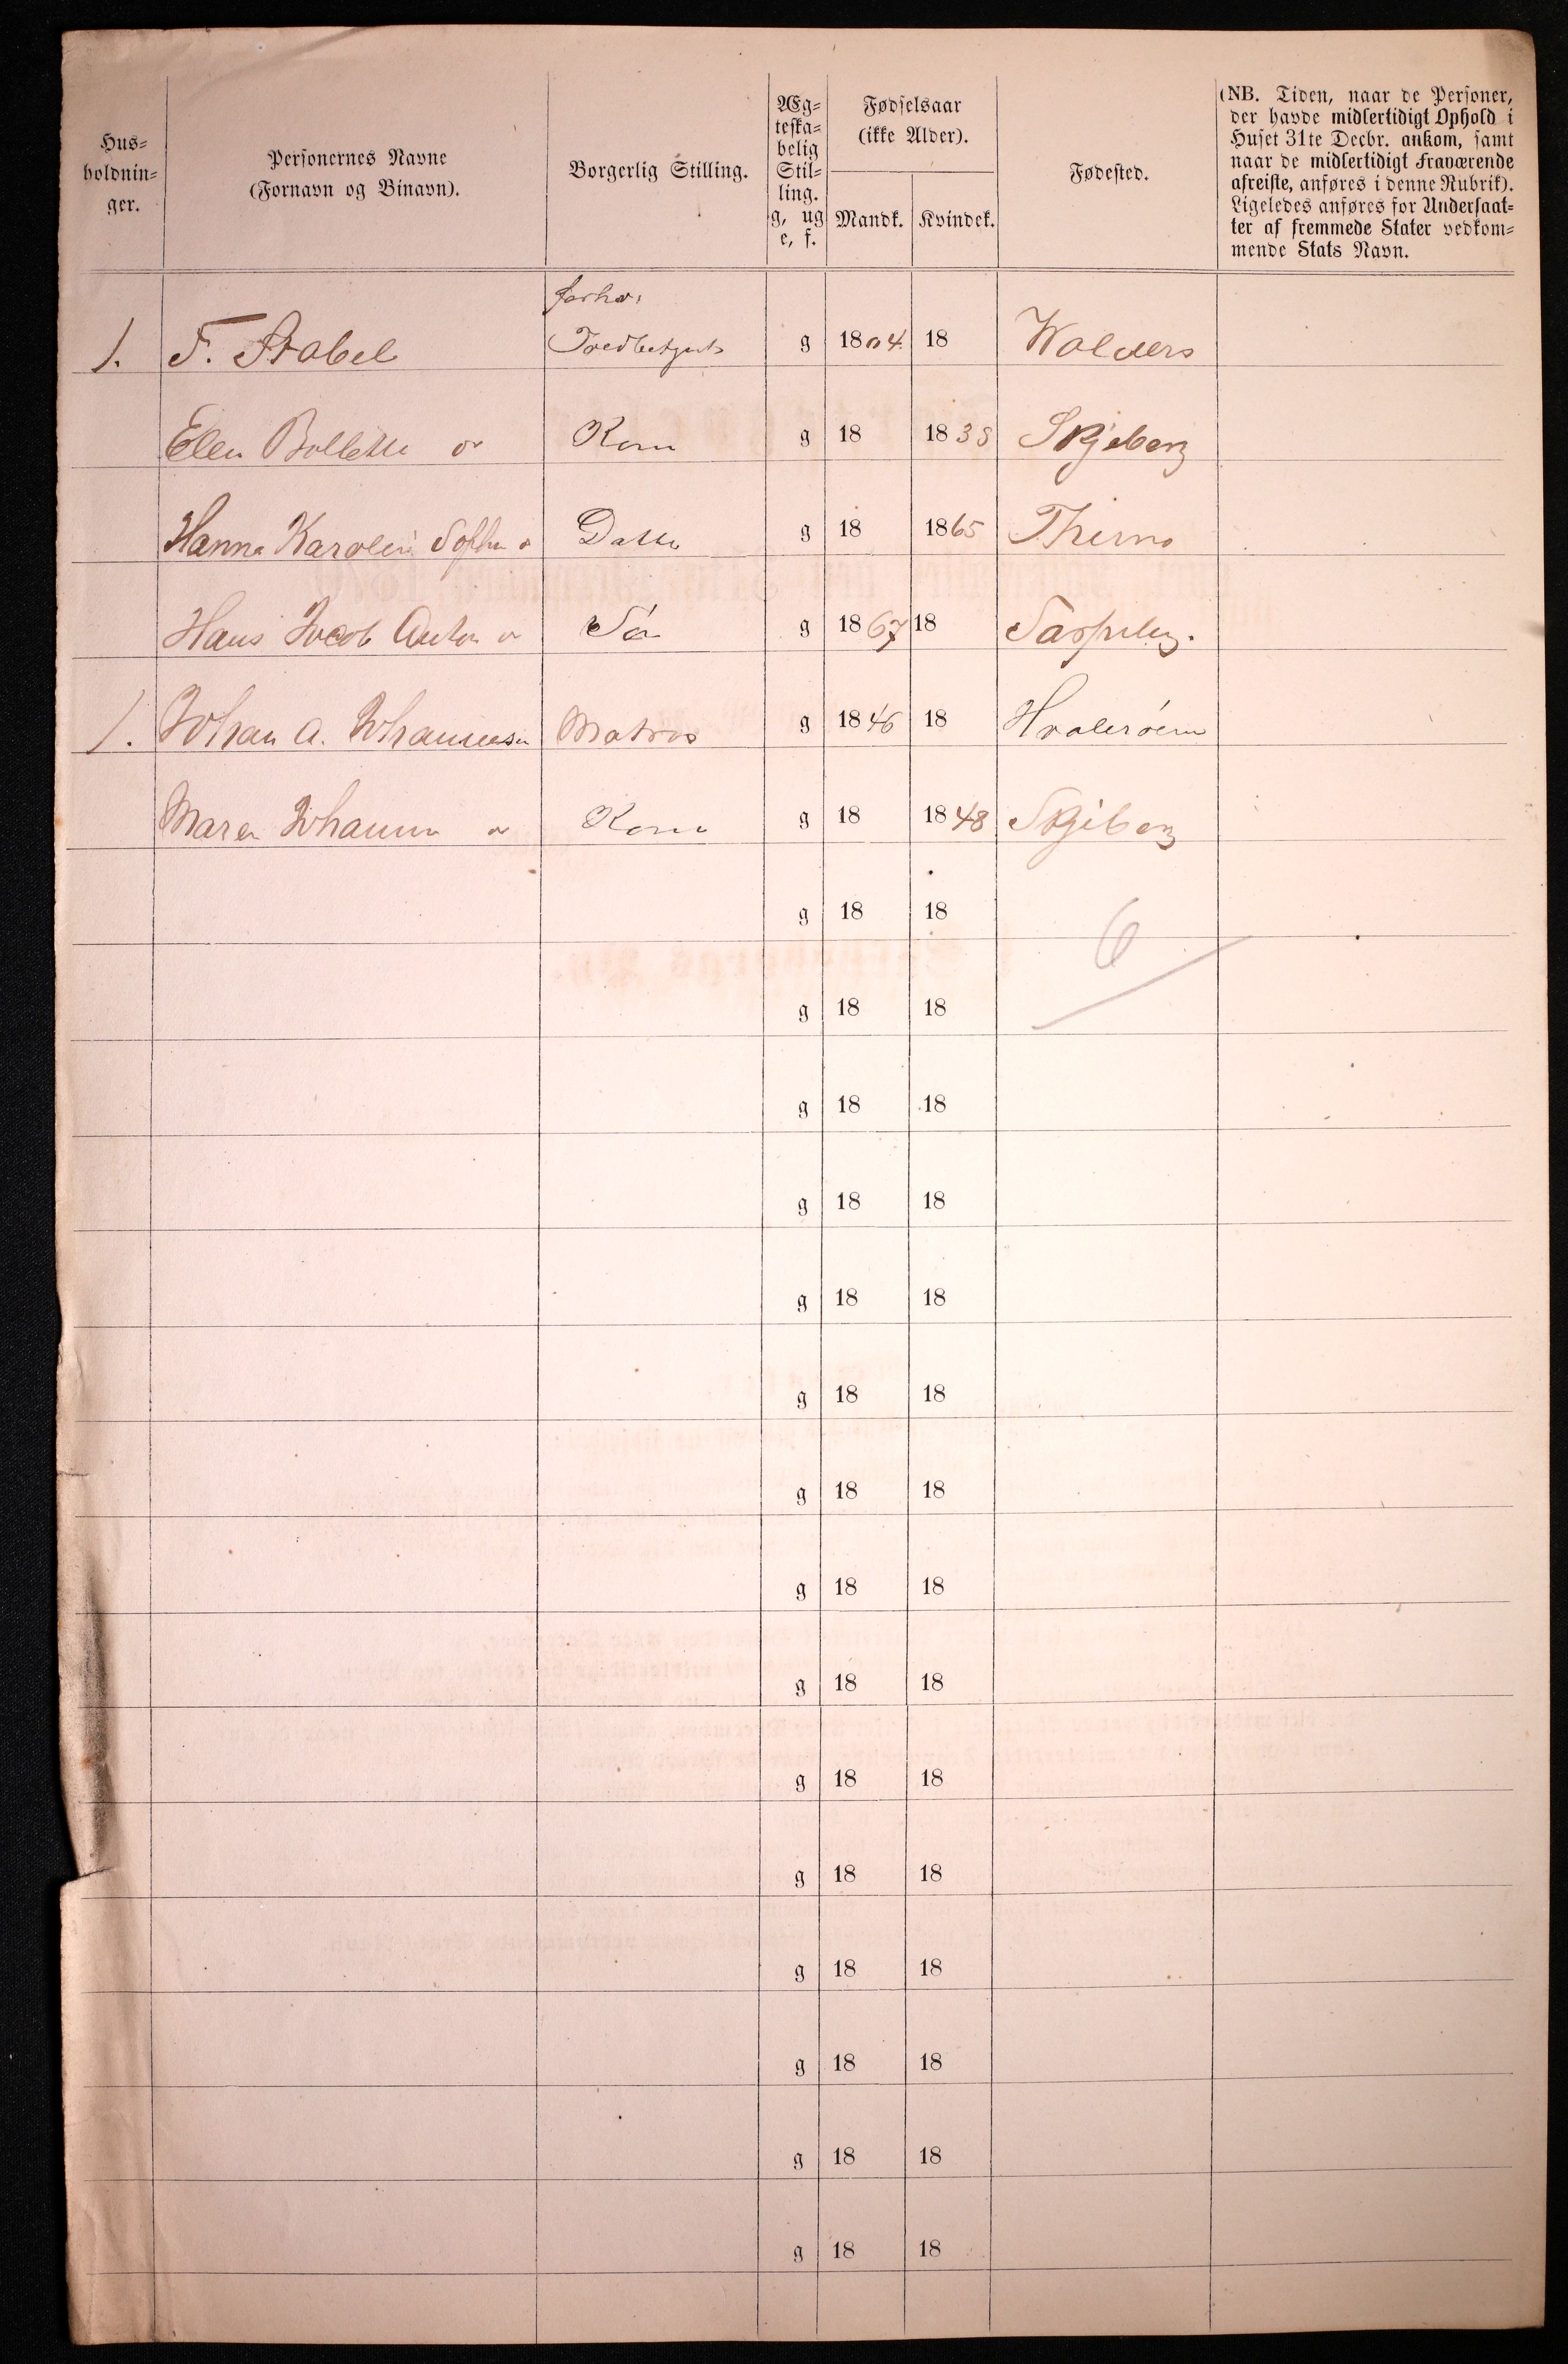 Hus-
holdnin-
ger.
Personernes Navne
(Fornavn og Binavn).
Borgerlig Stilling.
Æg-
teska-
belig
Stil-
ling.
g, ug
e, f.
Fødselsaar
(ikke Alder).
Mandk. Kvindek.
Fødested.
(NB. Tiden, naar de Personer,
der havde midlertidigt Ophold i
Huset 31te Decbr. ankom, samt
naar de midlertidigt Fraværende
afreiste, anføres i denne Rubrik).
Ligeledes anføres for Undersaat-
ter af fremmede Stater vedkom-
mende Stats Navn.
1. F. Stabel g 1804. 18 Walders
Ellen Bollette Kone g 18 1838 Skjeberg
Hanna Karoline Sophie Datter g 18 1865 Thuno
Hans Jacob Anton Søn g 1867 18 Sarpsbg.
1. Johan A. Johannesen Matros g 1846 18 Hvaleröerne
Maren Johanne Kone g 18 1848 Skjeberg
g 18 18 6
g 18 18
g 18 18
g 18 18
g 18 18
g 18 18
g 18 18
g 18 18
g 18 18
g 18 18
g 18 18
g 18 18
g 18 18
g 18 18
g 18 18